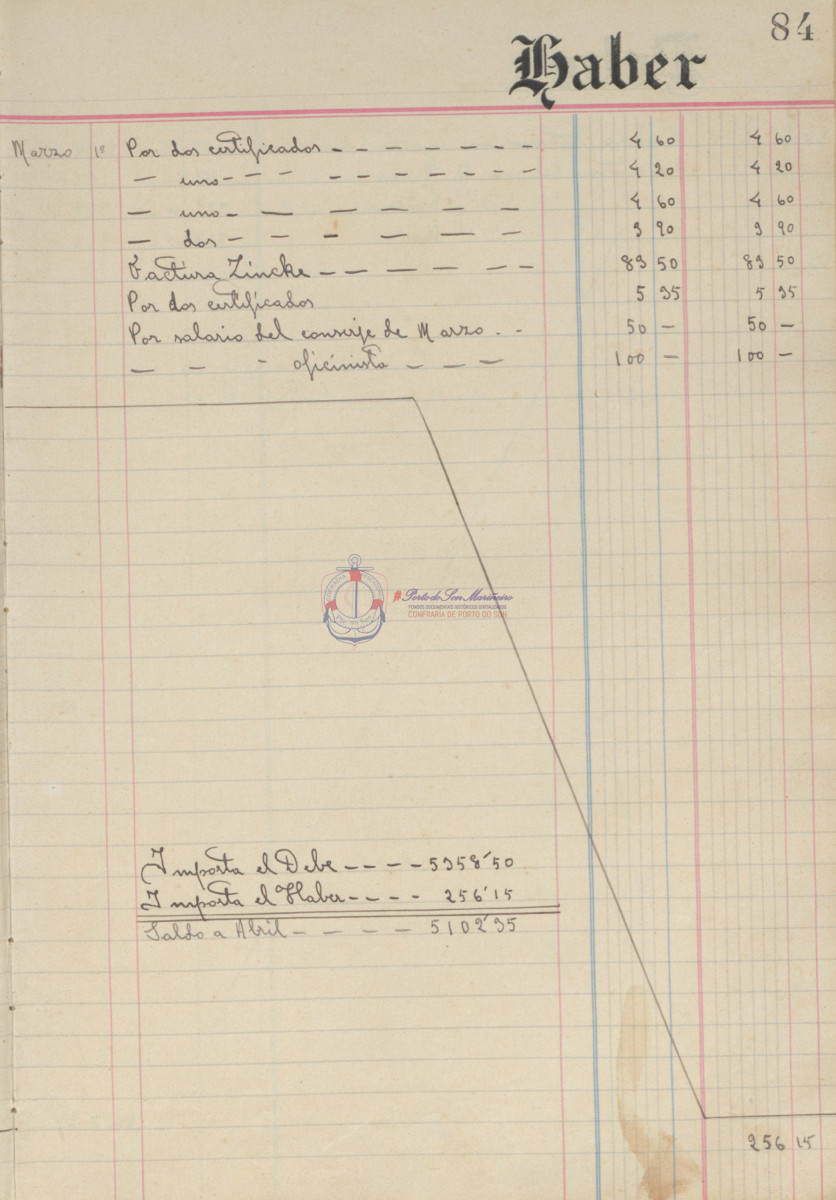 84
Haber
Marzo 1º Por dos certificados - - - - - - - 4 60 4 60
— uno - - - - - - - - - - 4 20 4 20
— uno - — — — — — 4 60 4 60
— dos - — - — — — 3 90 3 90
Factura Zincke — — — — — — 83 50 83 50
Por dos certificados 5 35 5 35
Por salario del conserje de Marzo . - 50 — 50 —
— — - oficinista — — — 100 — 100 —
#PortodoSonMariñeiro
FONDOS DOCUMENTAIS HISTÓRICOS DIXITALIZADOS
CONFRARÍA DE PORTO DO SON
Importa el Debe - - - - 5358'50
Importa el Haber - - - - 256'15
Saldo a Abril - — — — 5102'35
256 15